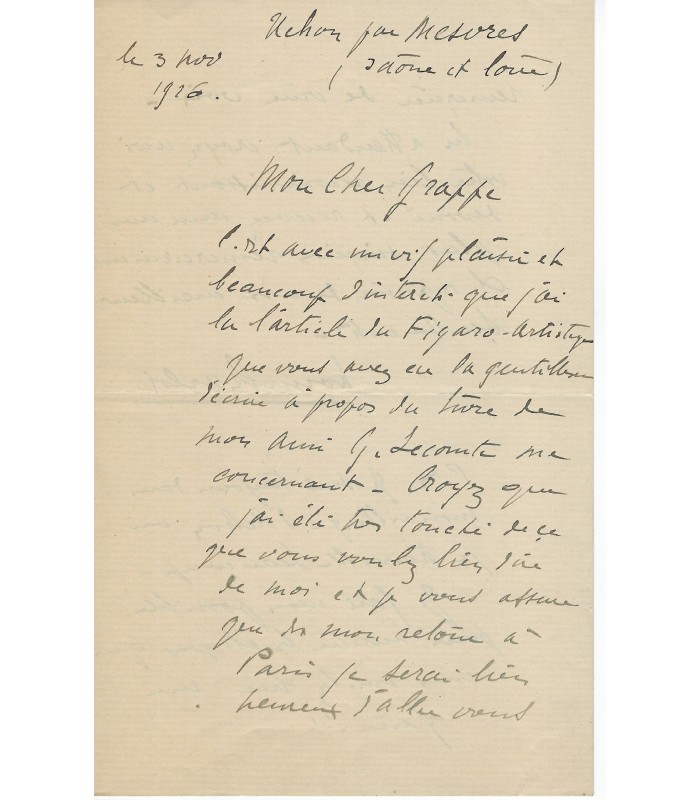 Uchon par Mesvres
le 3 nov (Saône et Loire)
1926.
Mon Cher Grappe
C'est avec un vif plaisir et
beaucoup d'interêt que j'ai
lu l'article du Figaro-Artistique
que vous avez eu la gentillesse
d'écrire à propos du livre de
mon ami G. Lecomte me
concernant - Croyez que
j'ai été très touché de ce
que vous voulez bien dire
de moi et je vous assure
que dès mon retour à
Paris je serai bien
heureux d'aller vous